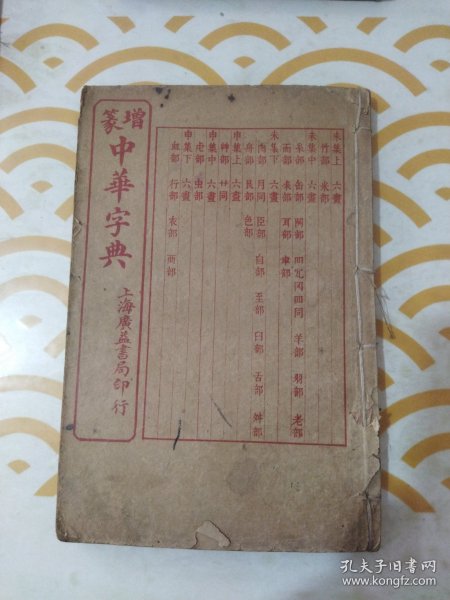 未集上 六畫
竹部 米部
未集中 六畫
糸部 缶部 网部 同 羊部 羽部 老部
而部 耒部 耳部 聿部
未集下 六畫
肉部 月同 臣部 自部 至部 臼部 舌部 舛部
舟部 艮部 色部
申集上 六畫
艸部 艹同
申集中 六畫
虍部 虫部
申集下 六畫
血部 行部 衣部 襾部
增篆
中華字典
上海廣益書局印行
孔夫子旧书网
www.kongfz.com